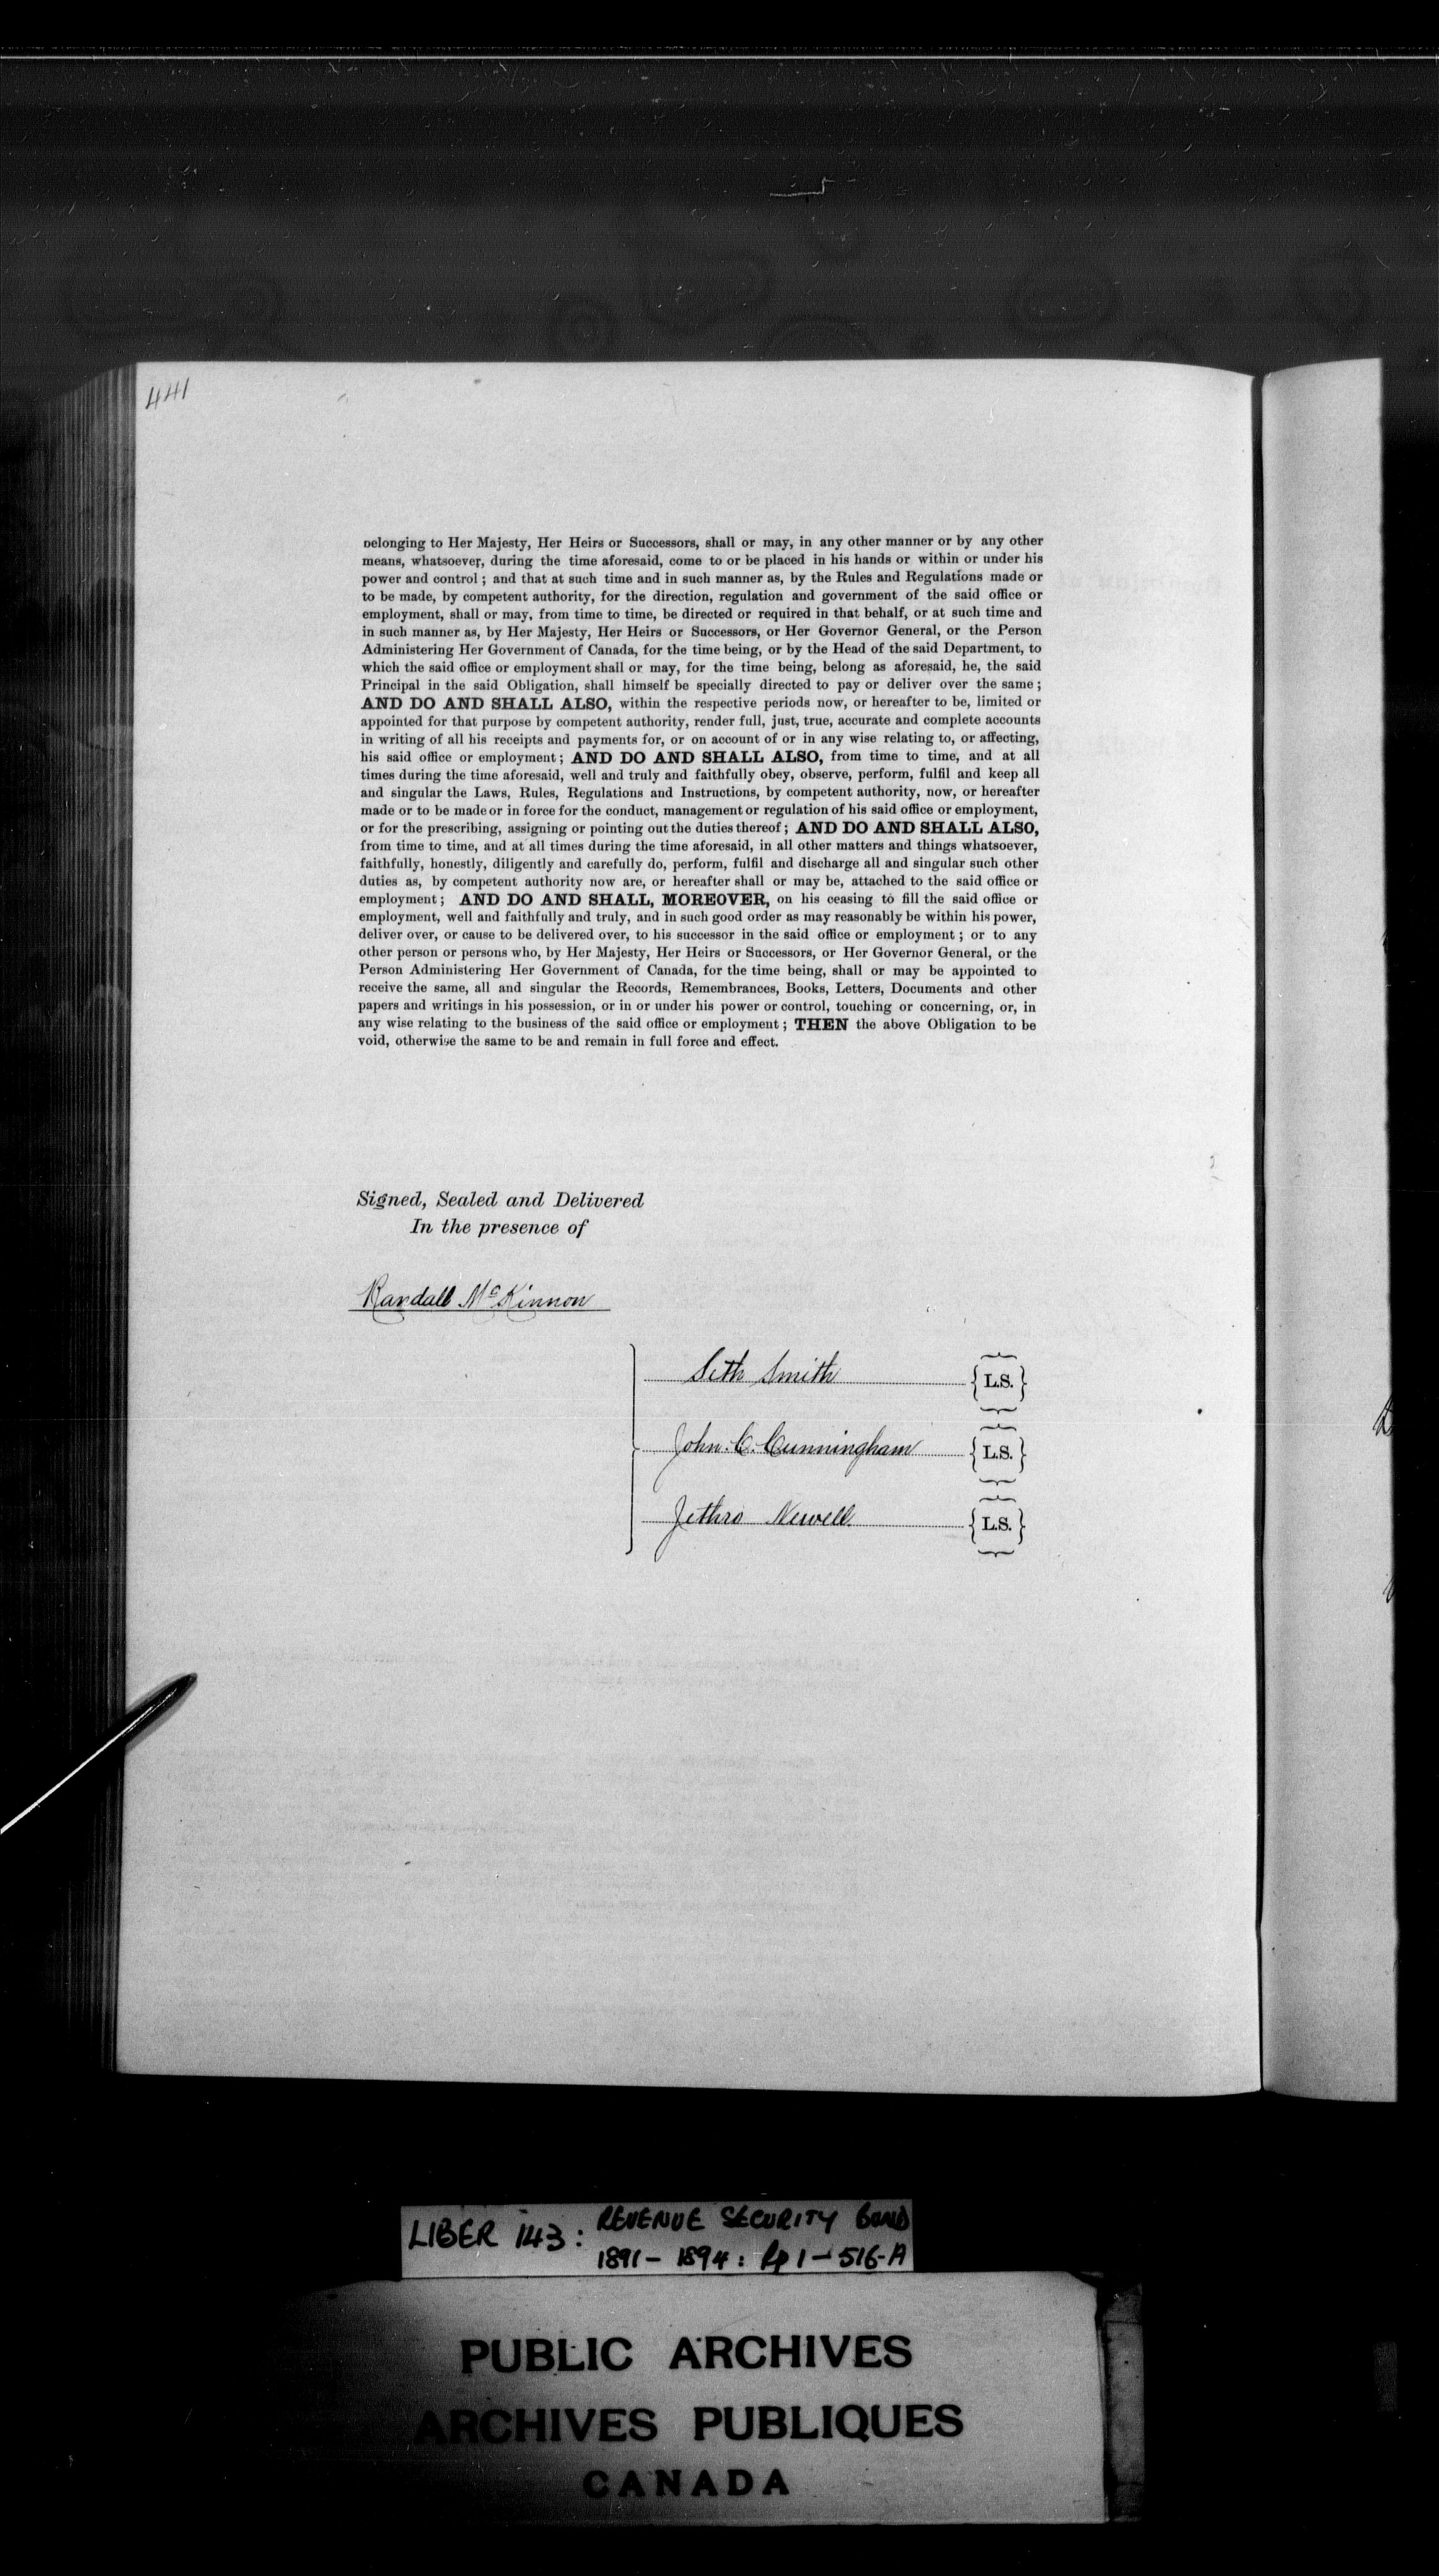 441
belonging to Her Majesty, Her Heirs or Successors, shall or may, in any other manner or by any other
means, whatsoever, during the time aforesaid, come to or be placed in his hands or within or under his
power and control; and that at such time and in such manner as, by the Rules and Regulations made or
to be made, by competent authority, for the direction, regulation and government of the said office or
employment, shall or may, from time to time, be directed or required in that behalf, or at such time and
in such manner as, by Her Majesty, Her Heirs or Successors, or Her Governor General, or the Person
Administering Her Government of Canada, for the time being, or by the Head of the said Department, to
which the said office or employment shall or may, for the time being, belong as aforesaid, he, the said
Principal in the said Obligation, shall himself be specially directed to pay or deliver over the same;
AND DO AND SHALL ALSO, within the respective periods now, or hereafter to be, limited or
appointed for that purpose by competent authority, render full, just, true, accurate and complete accounts
in writing of all his receipts and payments for, or on account of or in any wise relating to, or affecting,
his said office or employment; AND DO AND SHALL ALSO, from time to time, and at all
times during the time aforesaid, well and truly and faithfully obey, observe, perform, fulfil and keep all
and singular the Laws, Rules, Regulations and Instructions, by competent authority, now, or hereafter
made or to be made or in force for the conduct, management or regulation of his said office or employment,
or for the prescribing, assigning or pointing out the duties thereof; AND DO AND SHALL ALSO,
from time to time, and at all times during the time aforesaid, in all other matters and things whatsoever,
faithfully, honestly, diligently and carefully do, perform, fulfil and discharge all and singular such other
duties as, by competent authority now are, or hereafter shall or may be, attached to the said office or
employment; AND DO AND SHALL, MOREOVER, on his ceasing to fill the said office or
employment, well and faithfully and truly, and in such good order as may reasonably be within his power,
deliver over, or cause to be delivered over, to his successor in the said office or employment; or to any
other person or persons who, by Her Majesty, Her Heirs or Successors, or Her Governor General, or the
Person Administering Her Government of Canada, for the time being, shall or may be appointed to
receive the same, all and singular the Records, Remembrances, Books, Letters, Documents and other
papers and writings in his possession, or in or under his power or control, touching or concerning, or, in
any wise relating to the business of the said office or employment; THEN the above Obligation to be
void, otherwise the same to be and remain in full force and effect.
Signed, Sealed and Delivered
In the presence of
Randall McKinnon
Seth Smith {L.S.}
John C. Cunningham {L.S.}
Jethro Newell {L.S.}
LIBER 143: REVENUE SECURITY BOND
1891-1894: Pp 1-516-A
PUBLIC ARCHIVES
ARCHIVES PUBLIQUES
CANADA